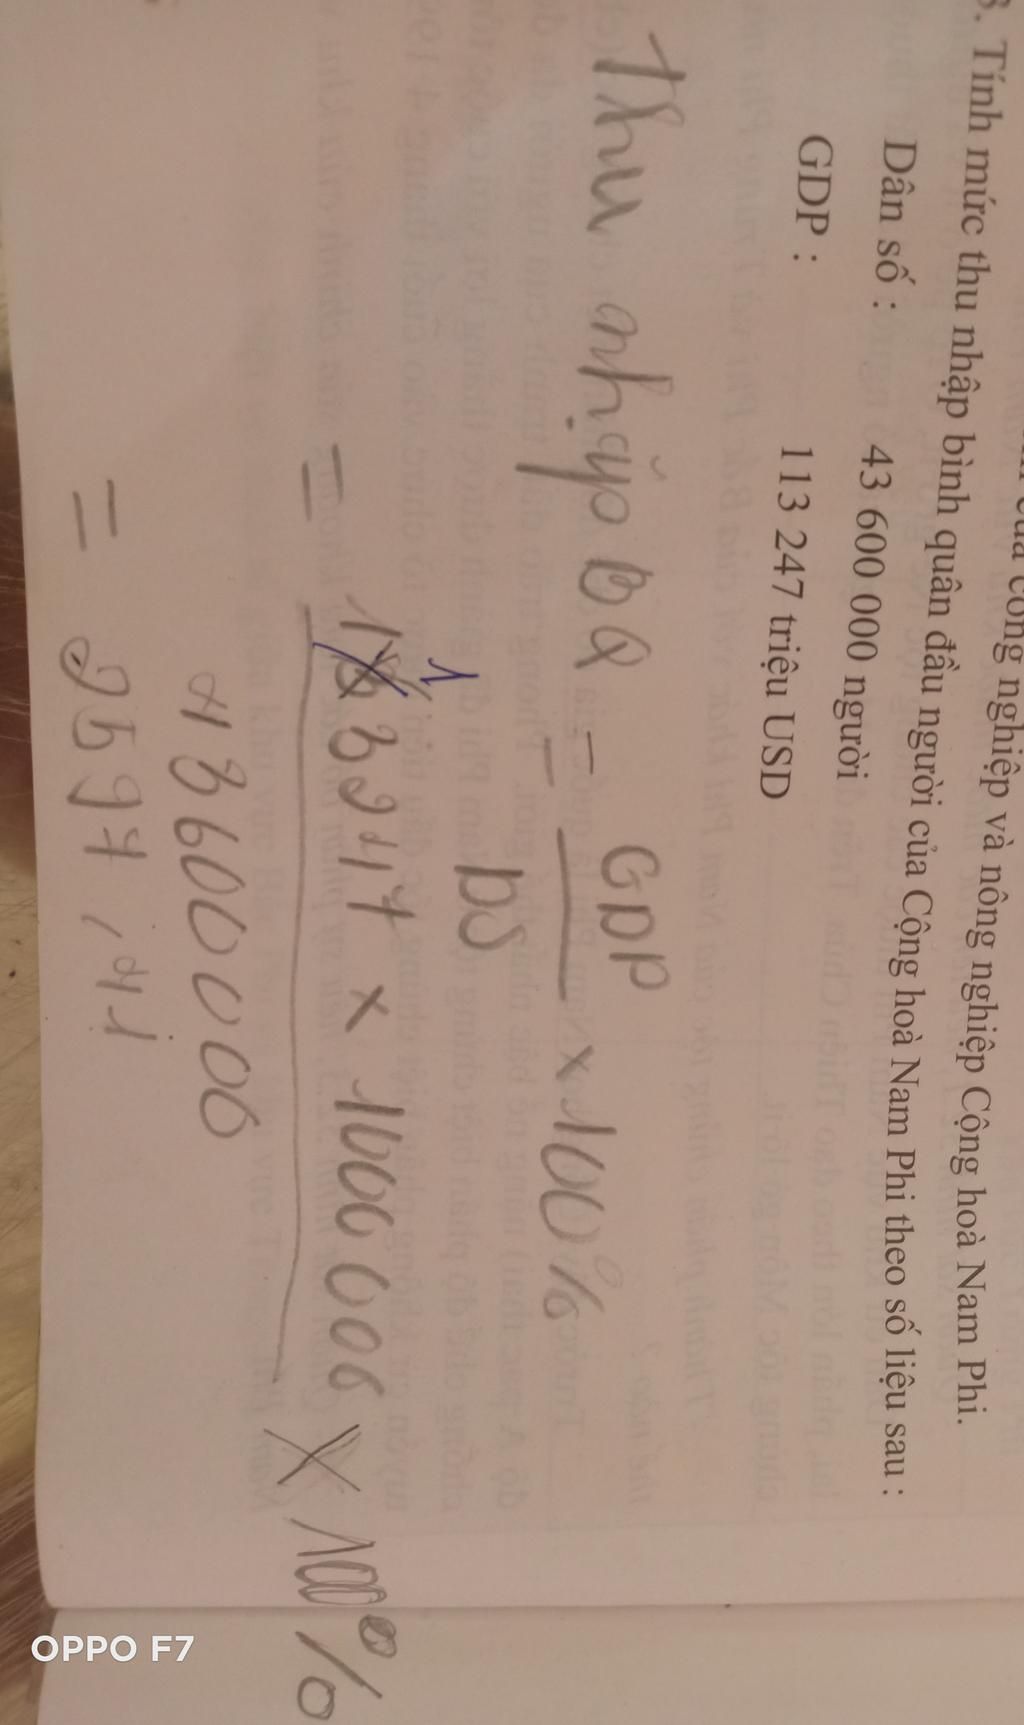 của công nghiệp và nông nghiệp Cộng hoà Nam Phi.
3. Tính mức thu nhập bình quân đầu người của Cộng hoà Nam Phi theo số liệu sau :
Dân số : 43 600 000 người
GDP : 113 247 triệu USD
Thu nhập BQ = GDP x 100%
DS
= 113247 x 1000000 x 100%
43600000
= 2597,41
OPPO F7